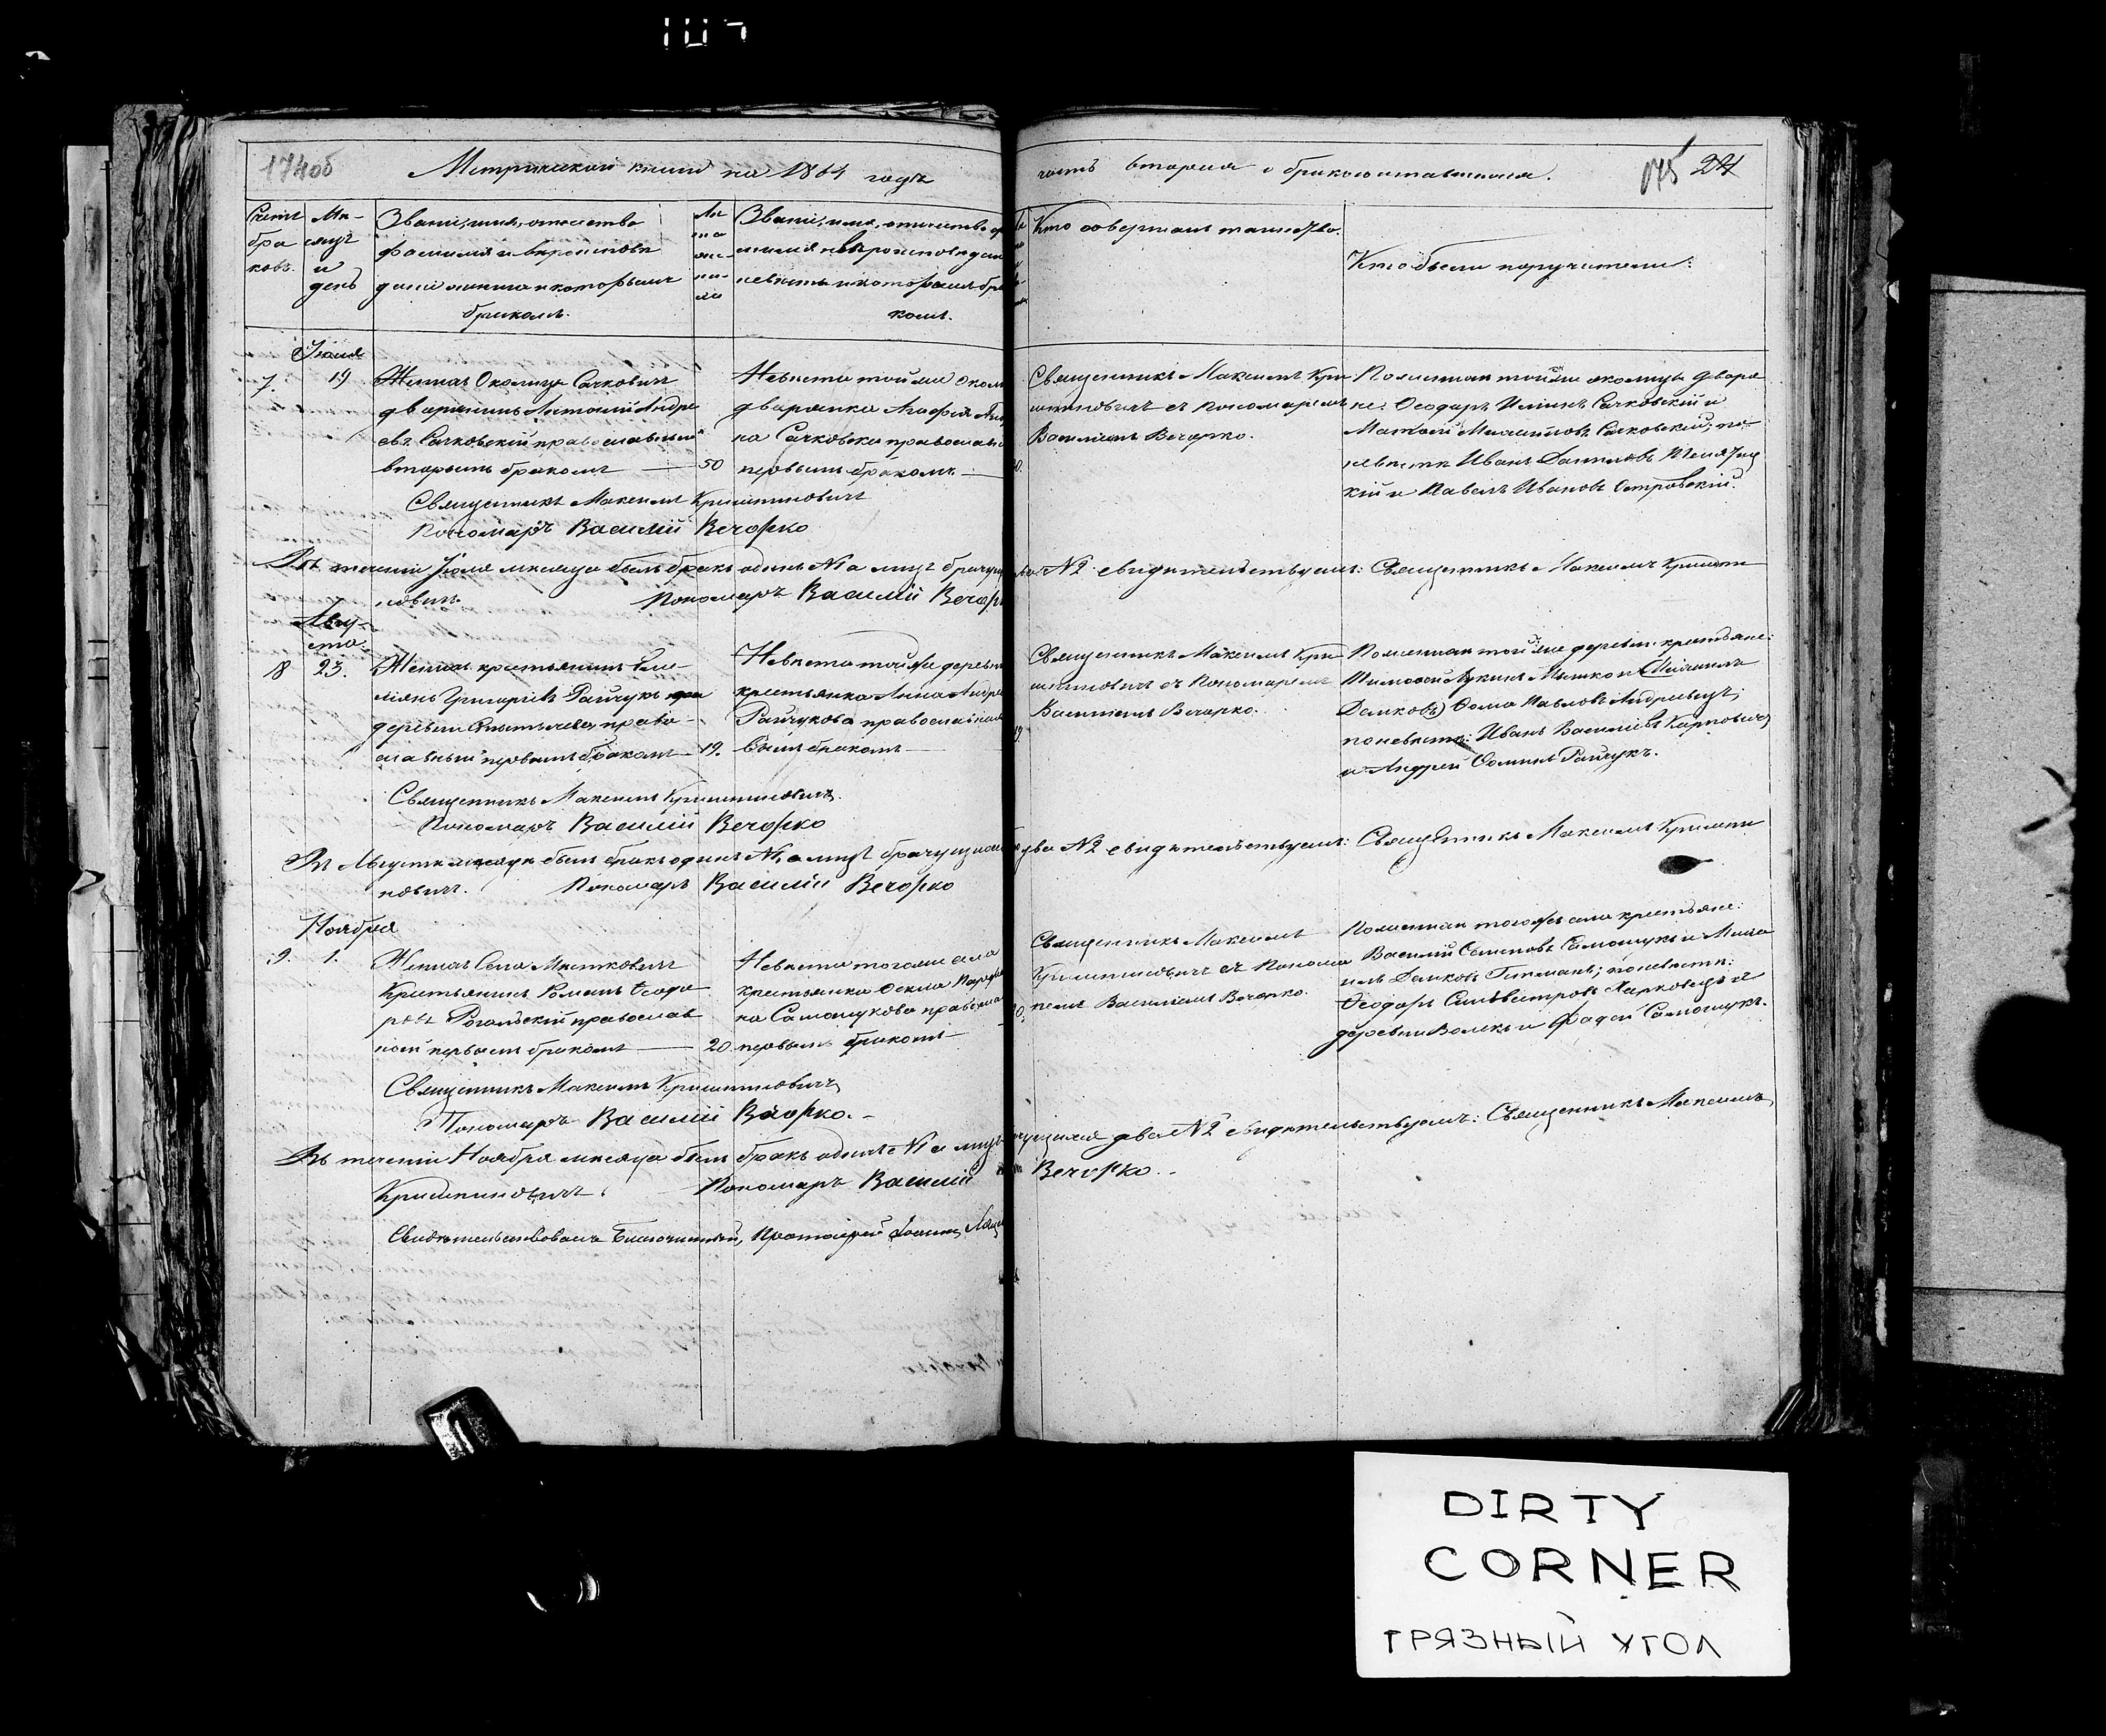 174об
Метрической книги на 1864 годъ
часть вторая о бракосочетавшихся.
175 24
Счетъ бра ковъ.
Мѣ- сяцъ и день
Званіе, имя, отчество
фамилія и вѣроисповѣ
даніе жениха и которымъ
бракомъ.
Лѣ та же- ни- ха
Званіе, имя, отчество фа
милія и вѣроисповѣдан
невѣсты и которымъ бра
комъ.
Кто совершалъ таинство.
Кто были поручители:
Іюля
7. 19
Женихъ Околицы Сачковичъ
дворянинъ Антоній Андре
евъ Сачковскій православный
вторымъ бракомъ — 50
Невѣста той же окол
дворянка Агафія
на Сачковска православн
первымъ бракомъ —
Священникъ Максимъ Кри
шпиновичъ съ пономаремъ
Василіемъ Вечорко.
По женихѣ той же околицы дворя
не: Ѳеодоръ Ильинъ Сачковскій и
Матѳей Михайловъ Сачковскій; по
невѣстѣ Иванъ Даниловъ
кій и Павелъ Ивановъ Островскій.
Священникъ Максимъ Кришпиновичъ
Пономарь Василій Вечорко
Въ теченіи Іюля мѣсяца былъ бракъ одинъ №1 а лицъ брачущ
два №2 свидѣтельствуемъ: Священникъ Максимъ Кришпи
новичъ. Пономарь Василій Вечорк
Авгу-
ста.
8 23.
Женихъ крестьянинъ Еме
ліянъ Григоріевъ Райчукъ
деревни право-
славный первымъ бракомъ 19.
Невѣста той же деревн
крестьянка Анна Андре
Райчукова православная
вымъ бракомъ —
Священникъ Максимъ Кри
шпиновичъ съ Пономаремъ
Василіемъ Вечорко.
По женихѣ той же деревни крестьяне:
Тимоѳей Лукинъ Мышко и Михаилъ
Демковъ, Ѳома Павловъ Андреюцъ;
по невѣстѣ: Иванъ Василіевъ Карповичъ
и Андрей Ѳоминъ Райчукъ.
Священникъ Максимъ Кришпиновичъ.
Пономарь Василій Вечорко
Въ Августѣ мѣсяцѣ былъ бракъ одинъ №1, а лицъ брачущихся
два №2 свидѣтельствуемъ: Священникъ Максимъ Кришпи
новичъ. Пономарь Василій Вечорко
Ноября
9. 1.
Женихъ Села Мотковичъ
Крестьянинъ Романъ Ѳеодо
ровъ Рогальскій православ
ной первымъ бракомъ — 20
Невѣста того же села
крестьянка Ѳекла
на Самошукова правосла
первымъ бракомъ
Священникъ Максимъ
Кришпиновичъ съ Понома
ремъ Василіемъ Вечорко.
По женихѣ того же села крестьяне:
Василій Семеновъ Самошукъ и Миха
илъ Демковъ Гетманъ; по невѣстѣ:
Ѳеодоръ Сильвестровъ Харковецъ и
деревни Волекъ и Фадей Самошукъ.
Священникъ Максимъ Кришпиновичъ
Пономарь Василій Вечорко.
Въ теченіи Ноября мѣсяца былъ бракъ одинъ №1 а лицъ
чущихся два №2 свидѣтельствуемъ: Священникъ Максимъ
Кришпиновичъ. Пономарь Василій
Вечорко.
Свидѣтельствовалъ Благочинный, Протоіерей Іоаннъ
DIRTY
CORNER
ГРЯЗНЫЙ УГОЛ